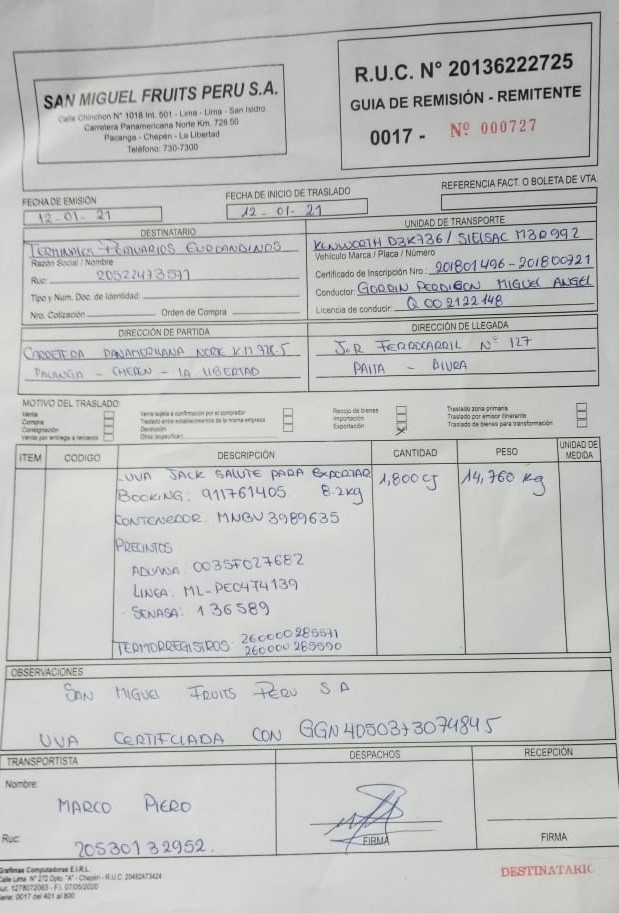 SAN MIGUEL FRUITS PERU S.A.
Calle Chinchon N° 1018 Int. 501 - Lima - Lima - San Isidro
Carretera Panamericana Norte Km. 728.50
Pacanga - Chepén - La Libertad
Teléfono: 730-7300
R.U.C. N° 20136222725
GUIA DE REMISIÓN - REMITENTE
0017 - Nº 000727
FECHA DE EMISIÓN
12-01-21
FECHA DE INICIO DE TRASLADO
12-01-21
REFERENCIA FACT. O BOLETA DE VTA.
DESTINATARIO
TERMINALES PORTUARIOS EUROANDINOS
Razón Social / Nombre
Ruc: 20522473571
Tipo y Num. Doc. de Identidad:
Nro. Cotización: Orden de Compra:
UNIDAD DE TRANSPORTE
KENWORTH D3K736 / SIELSAC M3R992
Vehículo Marca / Placa / Número
Certificado de Inscripción Nro.: 201801496-201800721
Conductor: MIGUEL ANGEL
Licencia de conducir: Q 002122148
DIRECCIÓN DE PARTIDA
CARRETERA PANAMERICANA NORTE KM 728.5
- CHEPEN - LA LIBERTAD
DIRECCIÓN DE LLEGADA
J.R FERROCARRIL N° 127
PAITA - PIURA
MOTIVO DEL TRASLADO:
Venta
Compra
Consignación
Venta por entrega a terceros
Venta sujeta a confirmación por el comprador
Traslado entre establecimientos de la misma empresa
Devolución
Otros (especificar)
Recojo de bienes
Importación
Exportación X
Traslado zona primaria
Traslado por emisor itinerante
Traslado de bienes para transformación
ITEM CODIGO DESCRIPCIÓN CANTIDAD PESO UNIDAD DE MEDIDA
UVA JACK SALUTE PARA EXPORTAR 1,800 CJ 14,760 Kg
BOOKING: 911761405 8.2kg
CONTENEDOR: MNBU3989635
PRECINTOS
ADUANA: 003SF027682
LINEA: ML-PE0474139
- SENASA: 136589
TERMORREGISTROS: 260000285571
260000285590
OBSERVACIONES
SAN MIGUEL FRUITS PERU S.A
UVA CERTIFCIADA CON GGN4050373074845
TRANSPORTISTA
Nombre:
MARCO PIERO
Ruc: 20530132952.
DESPACHOS
FIRMA
RECEPCIÓN
FIRMA
Grafimas Computadoras E.I.R.L.
Calle Lima N° 272 Dpto. "A" - Chepén - R.U.C. 20482473424
Aut. 1278072063 - F.I. 07/05/2020
Serie: 0017 del 401 al 800
DESTINATARIO